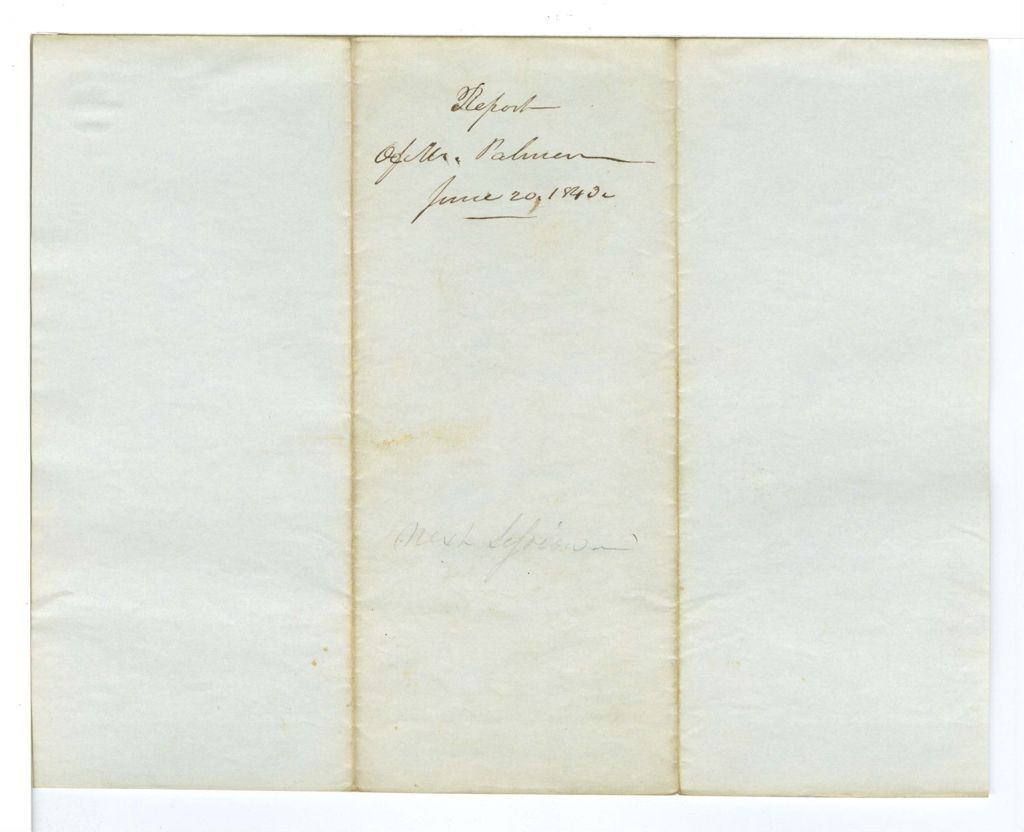 Report
Of Mr. Palmer
June 20, 1843.
Next